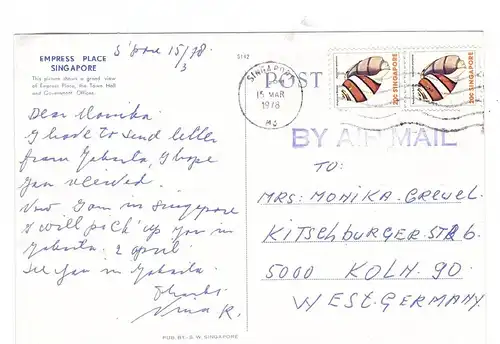 EMPRESS PLACE
SINGAPORE
This picture shows a grand view
of Empress Place, the Town Hall
and Government Offices.
S'pore 15/3 78
5142
POST
SINGAPORE
15 MAR
1978
20c SINGAPORE
20c SINGAPORE
BY AIR MAIL
Dear Monika
I have to send letter
from Jakarta, I hope
you received.
Now I am in Singapore
I will pick up you in
Jakarta. 2 april.
See you in Jakarta.
Thanks
R.
TO:
MRS: MONIKA. GREWEL.
KITSCHBURGER STR 6.
5000 KOLN. 90.
WEST. GERMANY
PUB. BY:- S. W. SINGAPORE